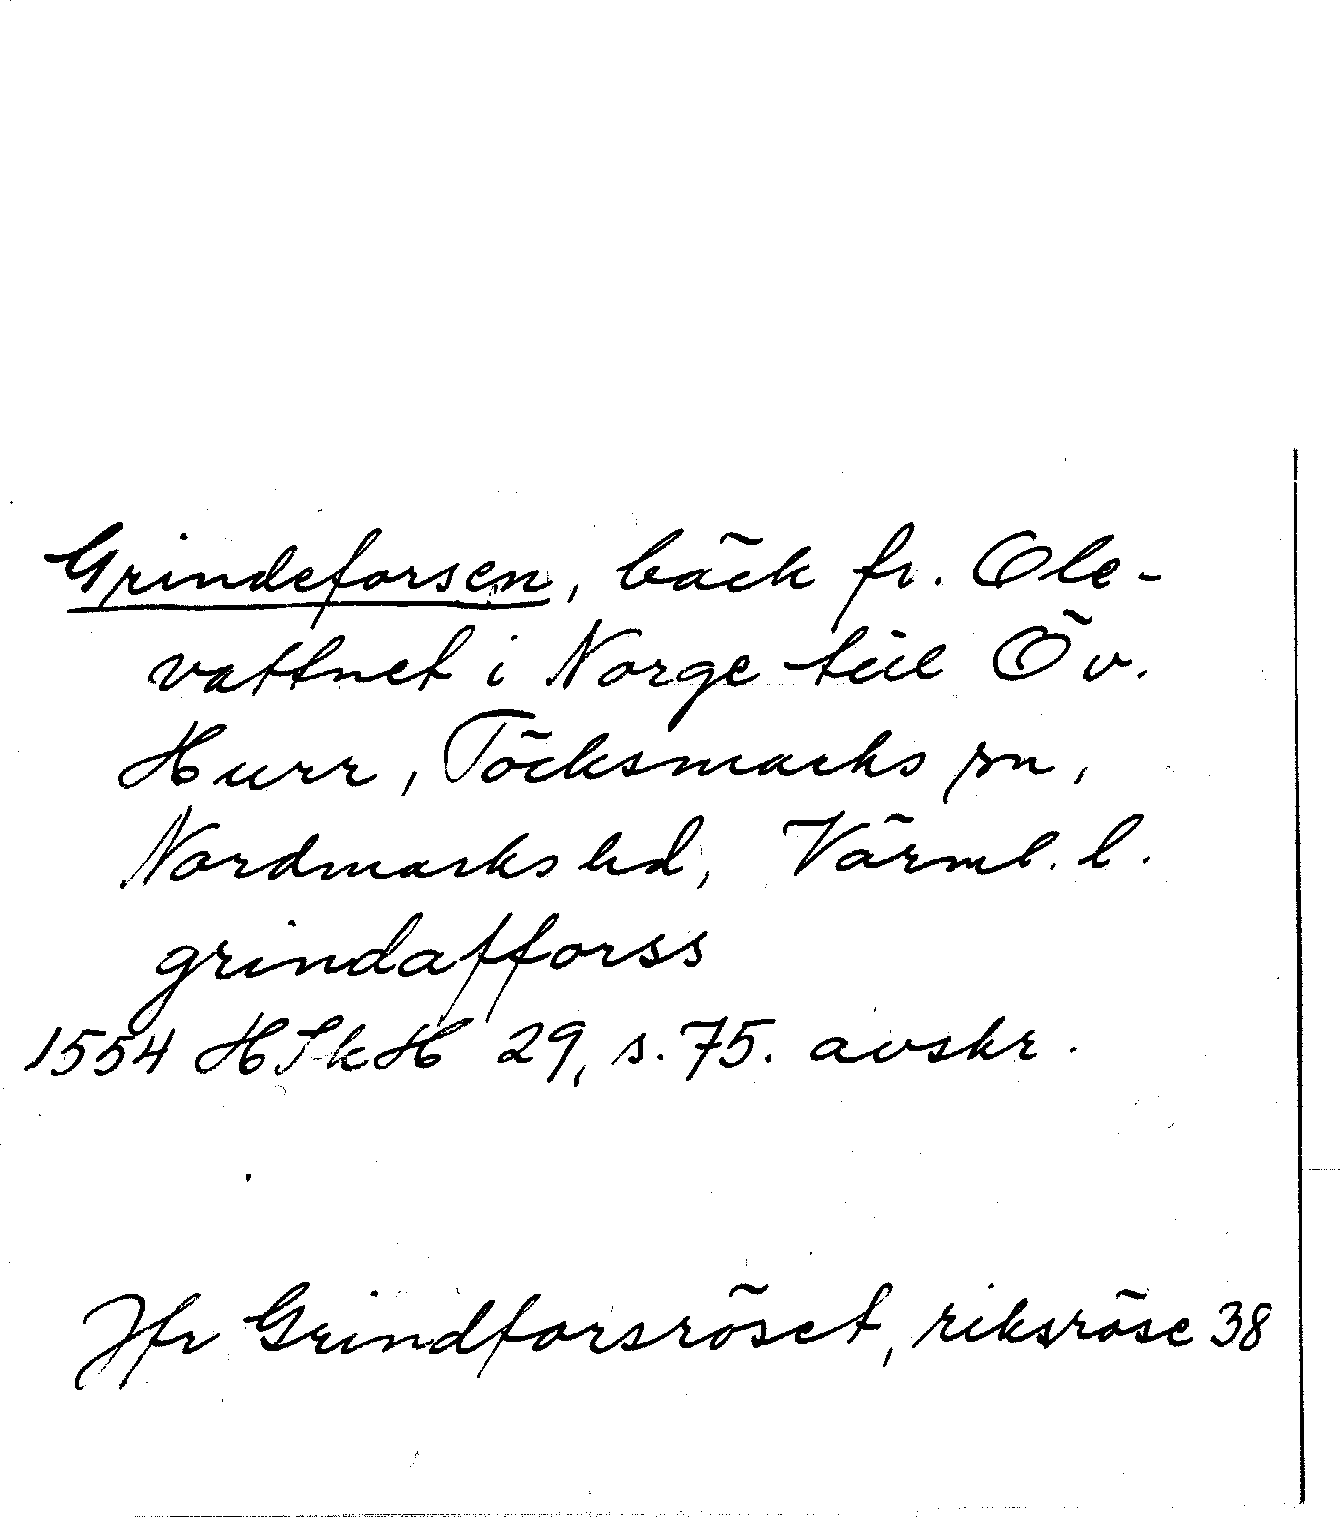 Grindeforsen, bäck fr. Ole-
vattnet i Norge till Öv.
Hurr, Töcksmarks sn,
Nordmarks hd, Värml. l.
grindafforss
1554 HSkH 29, s. 75. avskr.
Jfr Grindforsröset, riksröse 38